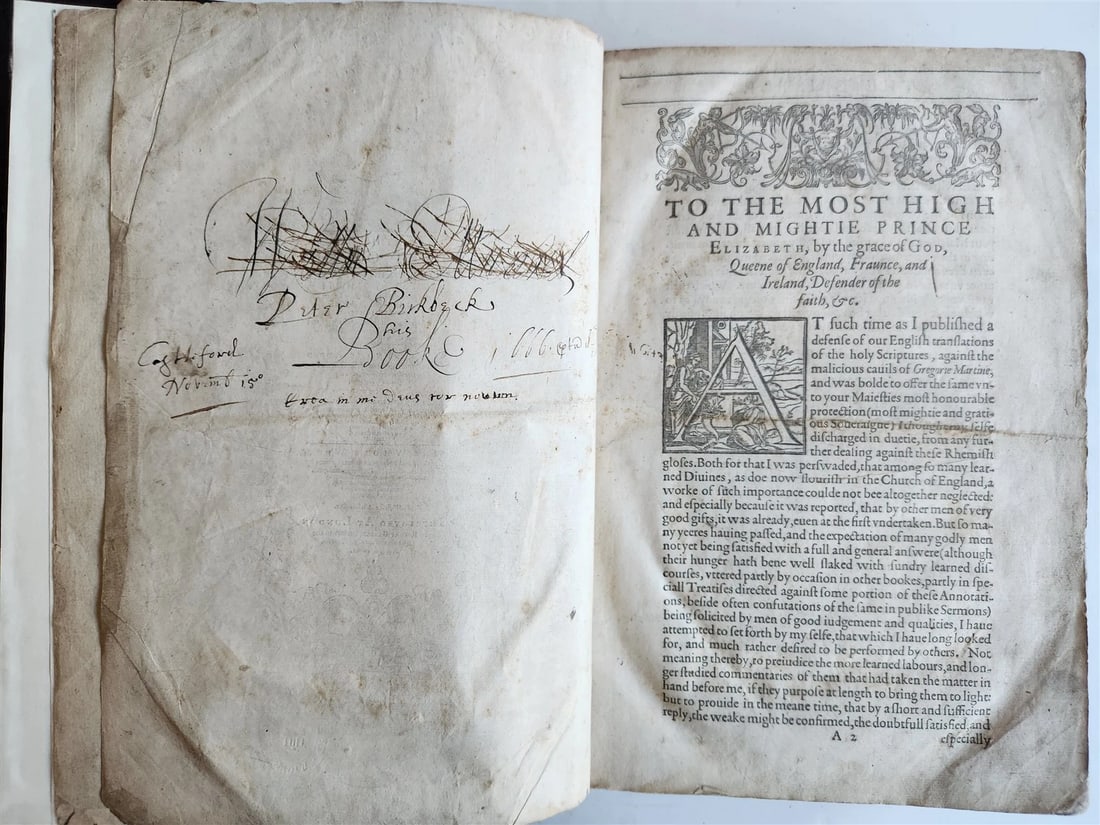 Peter Birkbeck
his
Book 1666
Castleford
Novemb 15°
Crea in mi deus cor novum.
TO THE MOST HIGH
AND MIGHTIE PRINCE
ELIZABETH, by the grace of GOD,
Queene of England, Fraunce, and
Ireland, Defender of the
faith, &c.
AT ſuch time as I publiſhed a
defenſe of our Engliſh tranſlations
of the holy Scriptures, againſt the
malicious cauils of Gregorie Martine,
and was bolde to offer the ſame vn-
to your Maieſties moſt honourable
protection (moſt mightie and grati-
ous Soueraigne) I thought my ſelfe
diſcharged in duetie, from any fur-
ther dealing againſt theſe Rhemiſh
gloſes. Both for that I was perſwaded, that among ſo many lear-
ned Diuines, as doe now flouriſh in the Church of England, a
worke of ſuch importance coulde not bee altogether neglected:
and eſpecially becauſe it was reported, that by other men of very
good gifts, it was already, euen at the firſt vndertaken. But ſo ma-
ny yeeres hauing paſſed, and the expectation of many godly men
not yet being ſatisfied with a full and general anſwere (although
their hunger hath bene well ſlaked with ſundry learned diſ-
courſes, vttered partly by occaſion in other bookes, partly in ſpe-
ciall Treatiſes directed againſt ſome portion of theſe Annotati-
ons, beſide often confutations of the ſame in publike Sermons)
being ſolicited by men of good iudgement and qualities, I haue
attempted to ſet forth by my ſelfe, that which I haue long looked
for, and much rather deſired to be performed by others. Not
meaning thereby, to preiudice the more learned labours, and lon-
ger ſtudied commentaries of them that had taken the matter in
hand before me, if they purpoſe at length to bring them to light:
but to prouide in the meane time, that by a ſhort and ſufficient
reply, the weake might be confirmed, the doubtfull ſatisfied, and
A 2 eſpecially